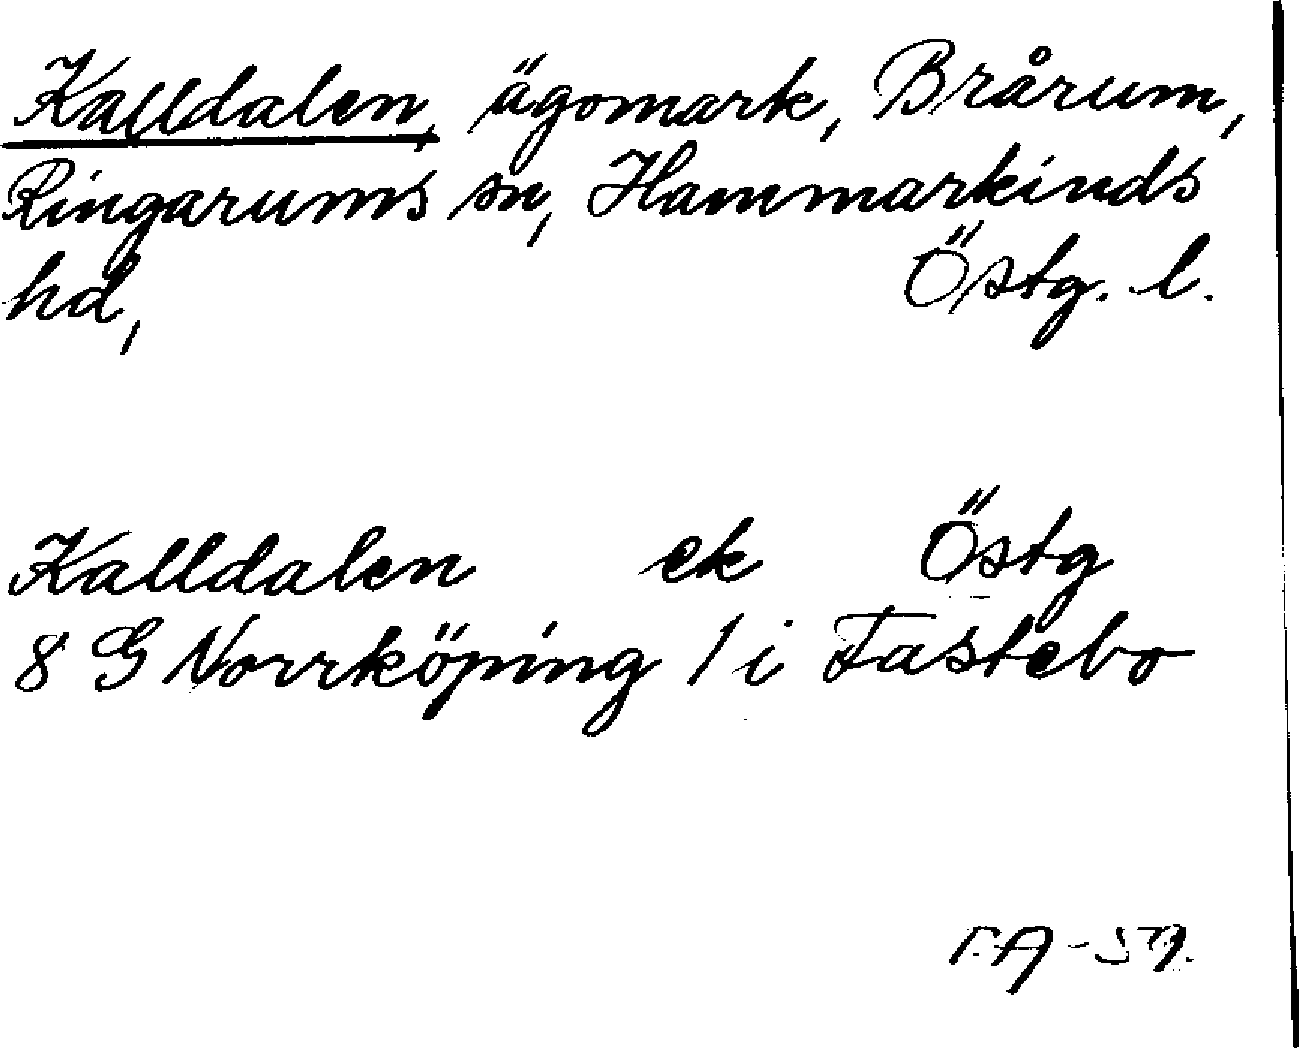 Kalldalen, ägomark, Brårum,
Ringarums sn, Hammarkinds
hd, Östg. l.
Kalldalen ek Östg
8 G Norrköping 1 i Fastebo